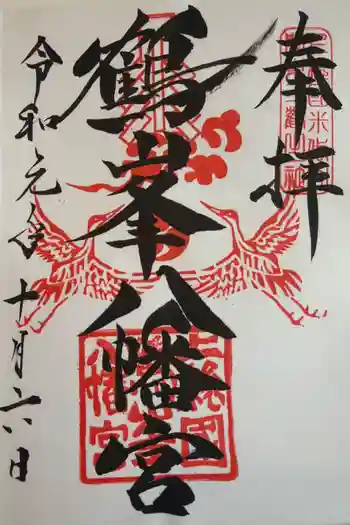 奉拝
鶴峯八幡宮
令和元年十月六日
上総國
八幡宮